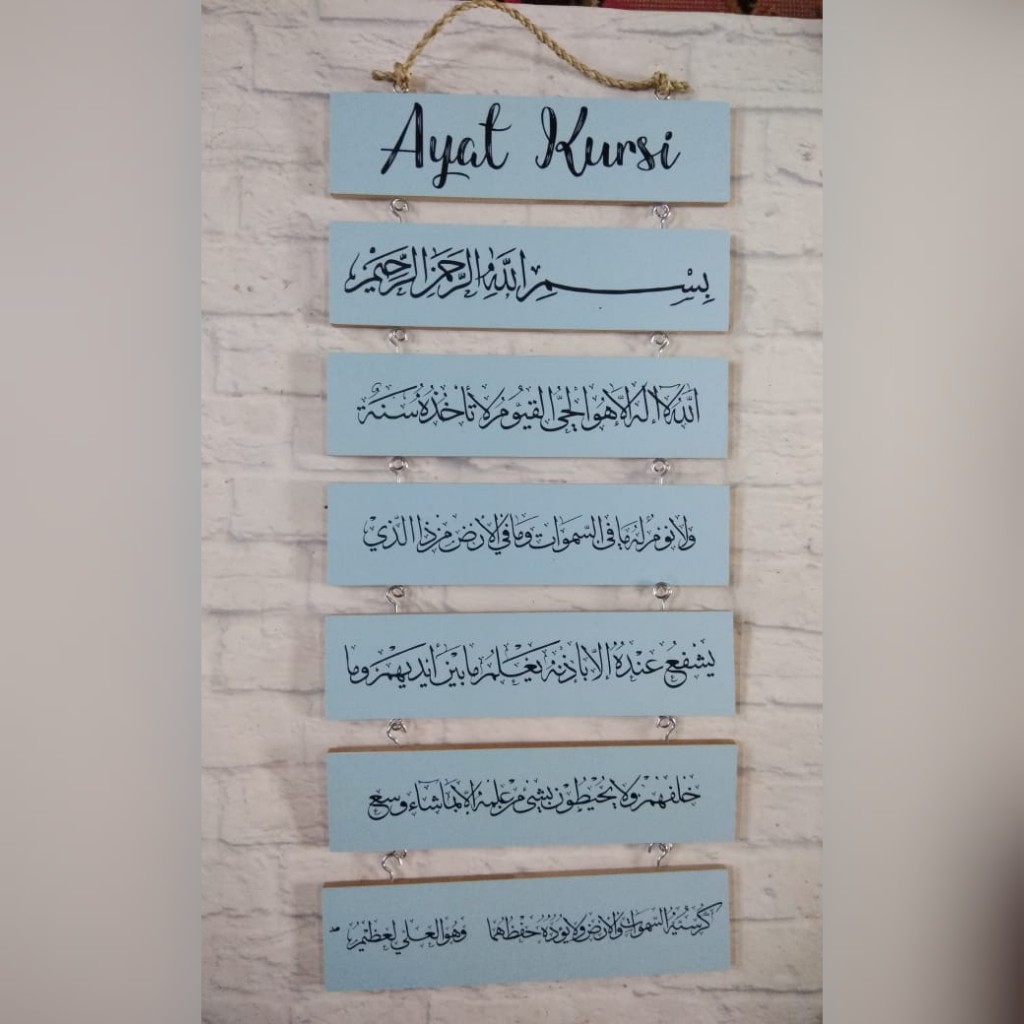 Ayat Kursi
بِسْمِ اللَّهِ الرَّحْمَنِ الرَّحِيمِ
اللَّهُ لَا إِلَهَ إِلَّا هُوَ الْحَيُّ الْقَيُّومُ لَا تَأْخُذُهُ سِنَةٌ
وَلَا نَوْمٌ لَهُ مَا فِي السَّمَوَاتِ وَمَا فِي الْأَرْضِ مَنْ ذَا الَّذِي
يَشْفَعُ عِنْدَهُ إِلَّا بِإِذْنِهِ يَعْلَمُ مَا بَيْنَ أَيْدِيهِمْ وَمَا
خَلْفَهُمْ وَلَا يُحِيطُونَ بِشَيْءٍ مِنْ عِلْمِهِ إِلَّا بِمَا شَاءَ وَسِعَ
كُرْسِيُّهُ السَّمَوَاتِ وَالْأَرْضَ وَلَا يَؤُدُهُ حِفْظُهُمَا وَهُوَ الْعَلِيُّ الْعَظِيمُ